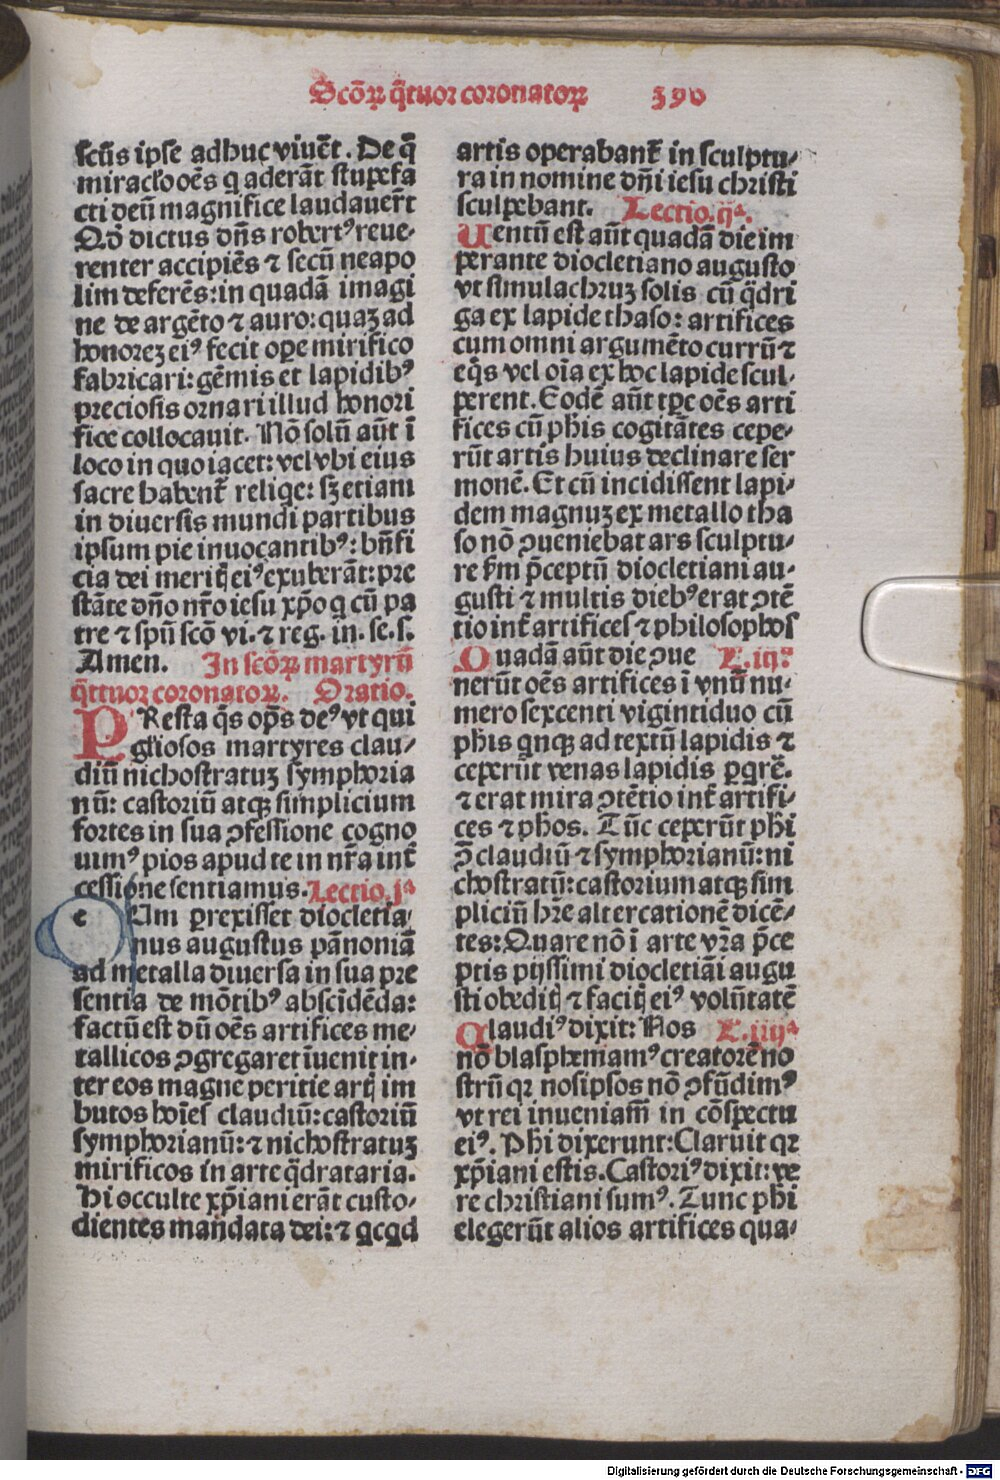 Scōꝝ q̄tuor coronatoꝝ 390
scūs ipse adhuc viuēt. De q̄
miraclo oēs q aderāt stupefa
cti deū magnifice laudauer̄t
Qd̓ dictus dn̄s robertꝰ reue-
renter accipiēs ⁊ secū neapo
lim deferēs: in quadā imagi
ne de argēto ⁊ auro: quaꝫ ad
honoreꝫ eiꝰ fecit oꝑe mirifico
fabricari: gēmis et lapidibꝰ
preciosis ornari illud honori
fice collocauit. Nō solū aūt ī
loco in quo iacet: vel vbi eius
sacre habent̄ reliqe: sꝫ etiam
in diuersis mundi partibus
ipsum pie inuocantibꝰ: bn̄fi
cia dei meritꝭ eiꝰ exuberāt: pre
stāte dn̄o nr̄o iesu xp̄o q cū pa
tre ⁊ spū scō vi. ⁊ reg. in. se. s.
Amen. In scōꝝ martyrū
q̄ttuor coronatoꝝ. Oratio.
PResta q̄s op̄s deꝰ vt qui
gl̓iosos martyres clau-
diū nichostratuꝫ symphoria
nū: castoriū atqꝫ simplicium
fortes in sua ꝯfessione cogno
uimꝰ pios apud te in nr̄a int̄
cessione sentiamus. Lectio. jᵃ
cUm perrexisset diocletia
nus augustus pānoniā
ad metalla diuersa in sua pre
sentia de mōtibꝰ abscīdēda:
factū est dū oēs artifices me-
tallicos ꝯgregaret īuenit in-
ter eos magne peritie artꝭ im
butos hoīes claudiū: castoriū
symphorianū: ⁊ nichostratuꝫ
mirificos in arte q̄drataria.
Hi occulte xp̄iani erāt custo-
dientes mandata dei: ⁊ qcqd
artis operabant̄ in sculptu-
ra in nomine dn̄i iesu christi
sculpebant. Lectio. ijᵃ.
Uentū est aūt quadā die im
perante diocletiano augusto
vt simulachruꝫ solis cū q̄dri
ga ex lapide thaso: artifices
cum omni argumēto currū ⁊
eq̄s vel oīa ex hoc lapide scul-
perent. Eodē aūt tp̄e oēs arti
fices cū ph̓is cogitātes cepe-
rūt artis huius declinare ser
monē. Et cū incidissent lapi-
dem magnuꝫ ex metallo tha
so nō ꝯueniebat ars sculptu-
re ẜm p̄ceptū diocletiani au-
gusti ⁊ multis diebꝰ erat ꝯtē
tio int̄ artifices ⁊ philosophos
Quadā aūt die ꝯue L. iijᵃ
nerūt oēs artifices ī vnū nu-
mero sexcenti vigintiduo cū
ph̓is qnqꝫ ad textū lapidis ⁊
ceperūt venas lapidis ꝑqrē.
⁊ erat mira ꝯtētio int̄ artifi-
ces ⁊ ph̓os. Tūc ceperūt ph̓i
ꝯ̄ claudiū ⁊ symphorianū: ni
chostratū: castorium atqꝫ sim
pliciū hr̄e altercationē dicē-
tes: Quare nō ī arte vr̄a p̄ce
ptis pijssimi diocletiāi augu
sti obeditꝭ ⁊ facitꝭ eiꝰ volūtatē
Claudiꝰ dixit: Nos L. iiijᵃ
nō blasphemamꝰ creatorē no
strū qꝛ nosipsos nō ꝯfūdimꝰ
vt rei inueniam̄ in cōspectu
eiꝰ. Ph̓i dixerunt: Claruit qꝛ
xp̄iani estis. Castoriꝰ dixit: ve
re christiani sumꝰ. Tunc ph̓i
elegerūt alios artifices qua-
Digitalisierung gefördert durch die Deutsche Forschungsgemeinschaft - DFG